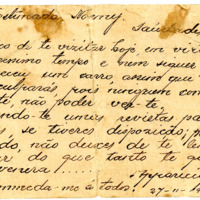 estimada Nomey.
Saúdades
de te vizitar hoje em vir
pessimo tempo e nem sequer
ceu um carro, assim que
culparás pois ninguem com
te, não poder ver-te,
ndo-te umas revistas pa
s, se tiveres disposição, p
do, não deixes de te le
r do que tanto te q
venera!....
Apparicio
mmenda-me a todos! 27-11-19